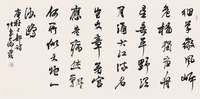 細草微風岸
危檣獨夜舟
星垂平野闊
月湧大江流
名豈文章著官
應老病休飄飄
何所似天地一
沙鷗